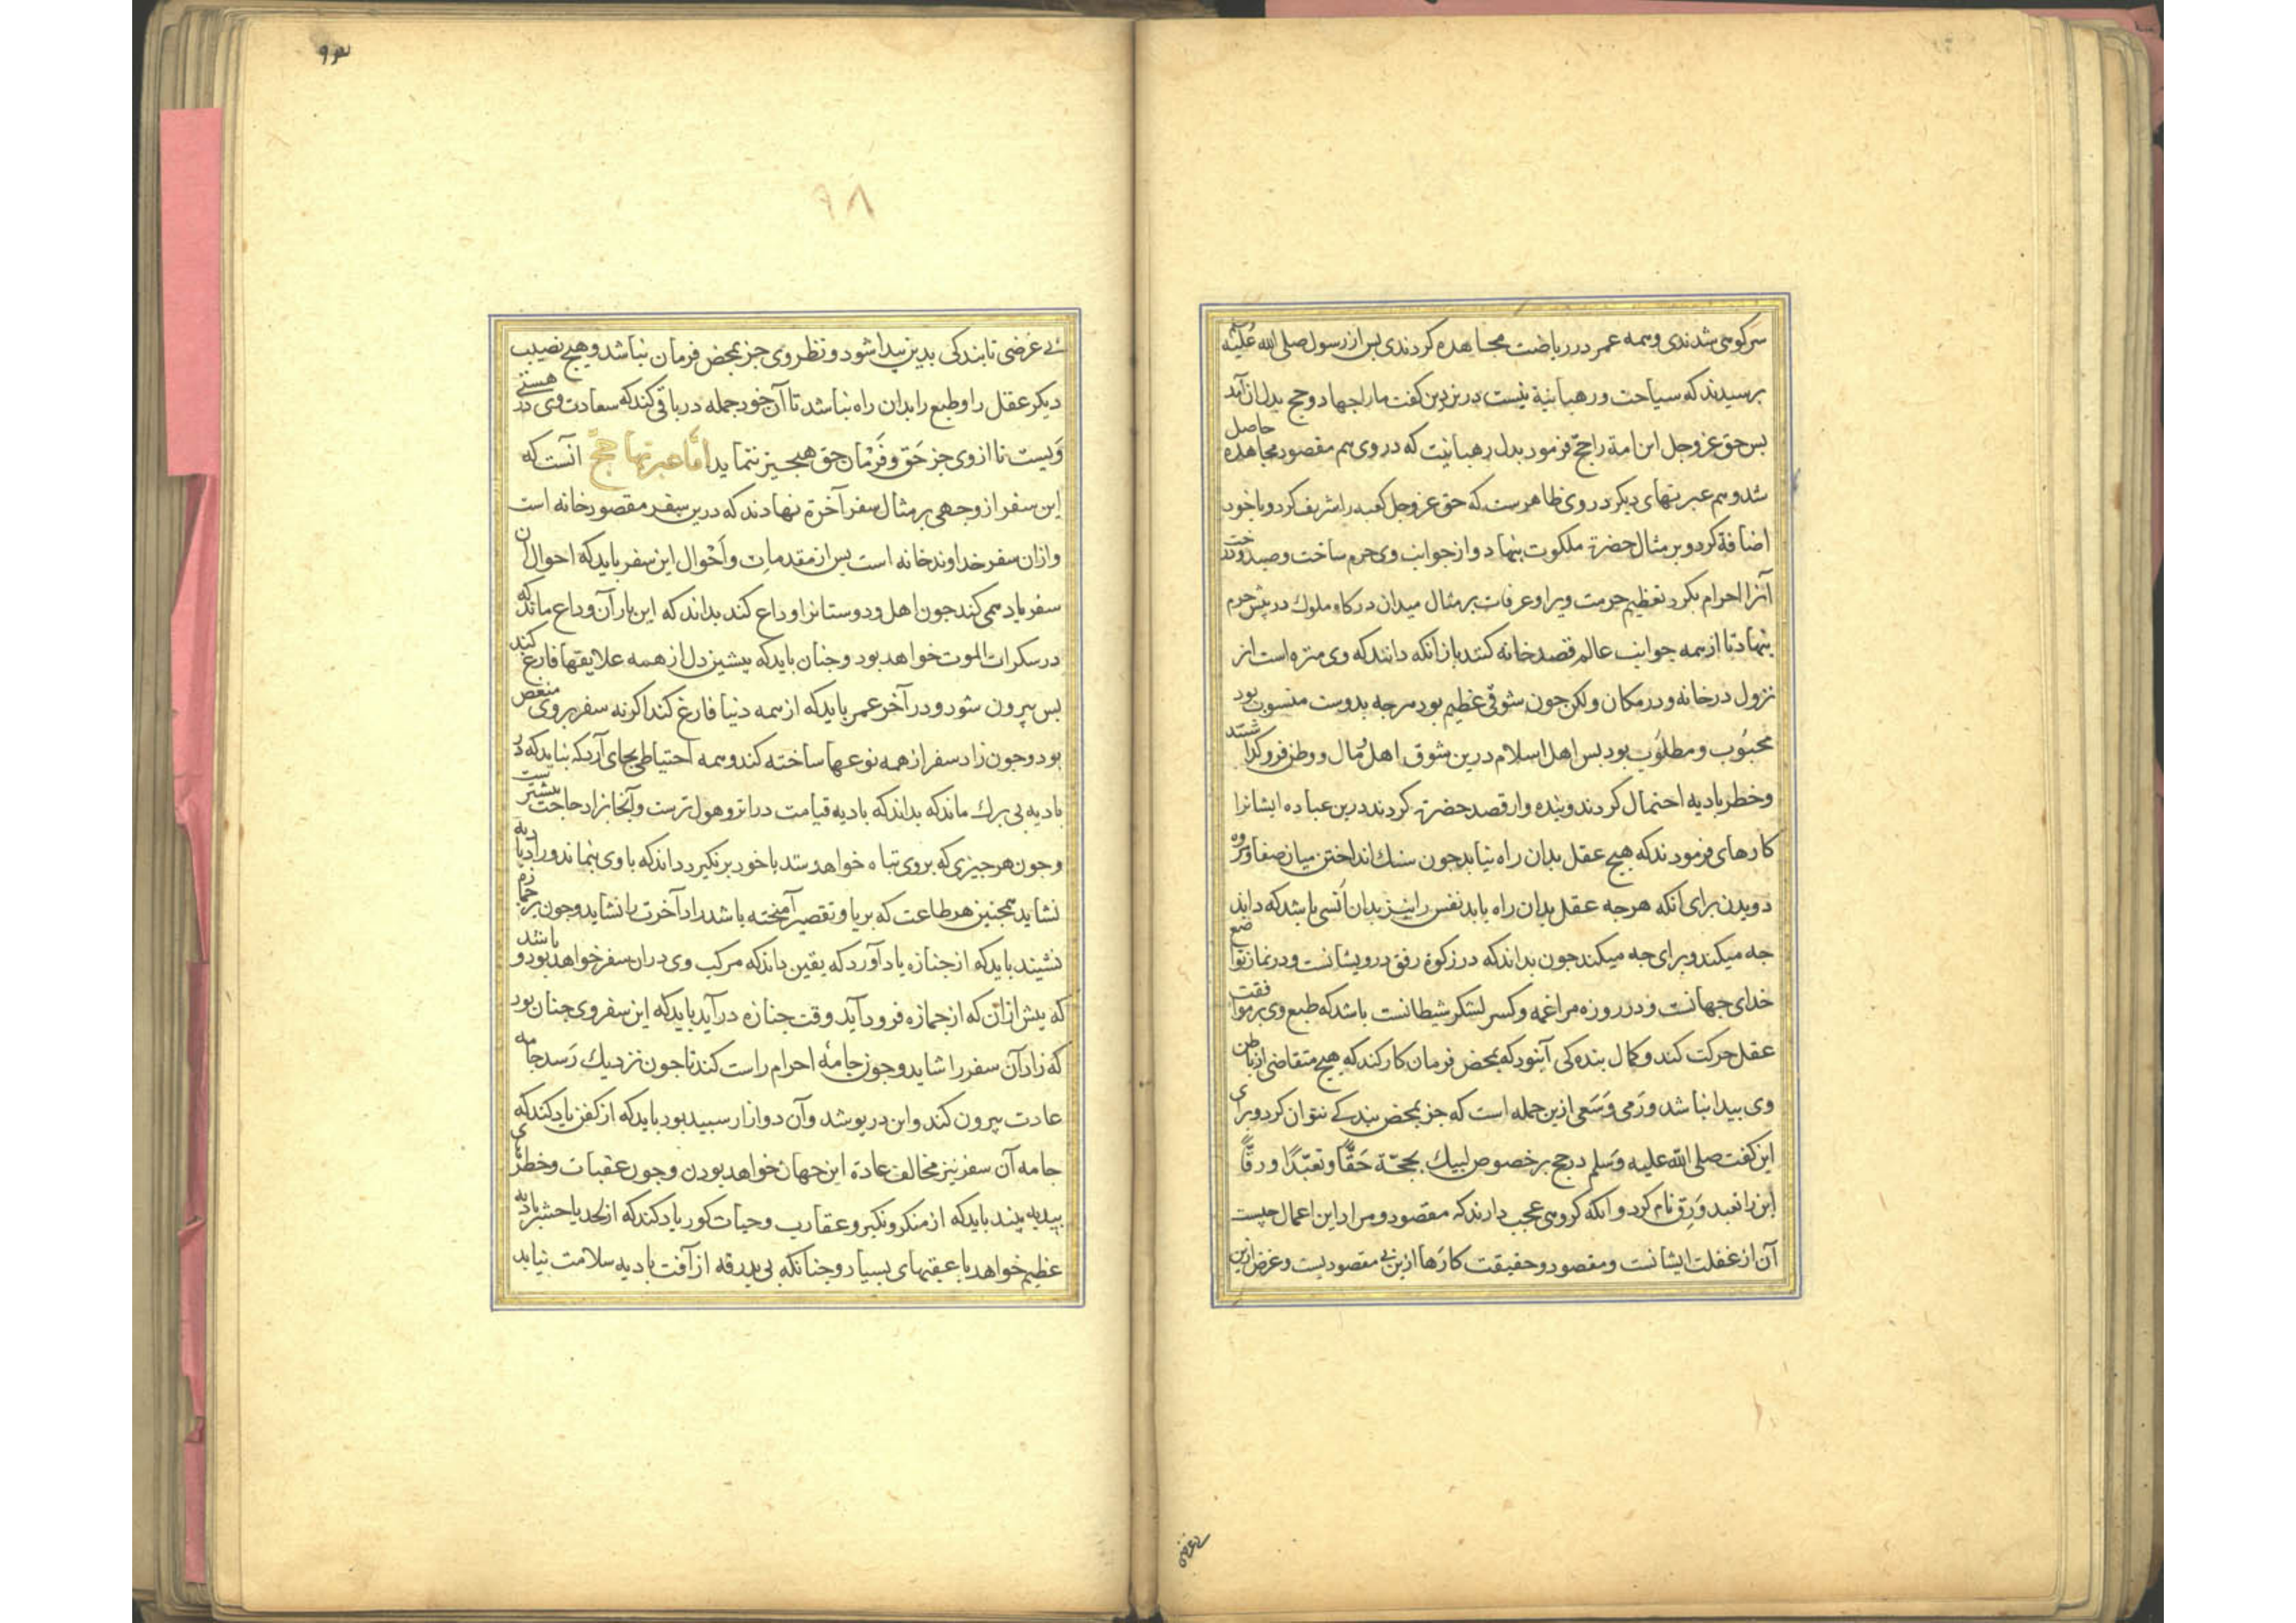 سرکوهی شدندی وهمه عمر در ریاضت مجاهده کردندی بس از رسول صلی الله علیه
برسیدند که سیاحت ورهبانیة نیست درین دین کفت ما را جهاد وحج بدل از آن آمد
بس حق عز وجل این امة را حج فرمود بدل رهبانیت که در وی هم مقصود مجاهده حاصل
شد وهم عبرتهای دیکر در وی ظاهرست که حق عز وجل کعبه را شریف کرد وبا خود
اضافة کرد وبر مثال حضرة ملکوت بنهاد واز جوانب وی حرم ساخت وصید ودرخت
آنرا احرام بکرد تعظیم حرمت ویرا وعرفات بر مثال میدان درکاه ملوك در پیش حرم
بنهاد تا از همه جوانب عالم قصد خانه کنند باز آنکه دانند که وی منزه است از
نزول در خانه ودر مکان ولکن جون شوق عظیم بود هرجه بدوست منسوب بود
محبوب ومطلوب بود بس اهل اسلام درین شوق اهل ومال ووطن فروکذاشتند
وخطر بادیه احتمال کردند وبنده وار قصد حضرة کردند درین عباده ایشانرا
کارهای فرمودند که هیچ عقل بدان راه نیابد جون سنك انداختن میان صفا ومروه
دویدن برای آنکه هرجه عقل بدان راه یابد نفس را نیز بدان اُنسی باشد که داند
جه میکند وبرای جه میکند جون بداند که در زکوة رفق درویشانست ودر نماز تواضع
خدای جهانست ودر روزه مراغمه وکسر لشکر شیطانست باشد که طبع وی بر موافقت
عقل حرکت کند وکمال بنده کی آنبود که بمحض فرمان کار کند که هیچ متقاضی از باطن
وی بیدا نباشد ورَمی وسَعی ازین جمله است که جز بمحض بندکی نتوان کرد وبرای
این کفت صلی الله علیه وسلم در حج بر خصوص لبیك بحجّة حقًّا وتعبّدًا ورقًّا
این را تعبد ورق نام کرد وآنکه کروهی عجب دارند که مقصود ومراد این اعمال جیست
آن از غفلت ایشانست ومقصود وحقیقت کارها ازین بی مقصودیست وغرض ازین
بی غرضی
۹۳
۹۸
بی غرضی تا بندکی بدین بیدا شود ونظر وی جز بمحض فرمان نباشد وهیچ نصیب
دیکر عقل را وطبع را بدان راه نباشد تا آن خود جمله در باقی کند که سعادت وی در نیستی
ویست تا از وی جز حق وفرمان حق هیجیز ننماید اما عبرتهاء حج آنست که
این سفر از وجهی بر مثال سفر آخرة نهادند که درین سفر مقصود خانه است
وازان سفر خداوند خانه است بس از مقدمات واحوال این سفر باید که احوال آن
سفر یاد همی کند جون اهل ودوستانرا وداع کند بداند که این بار آن وداع ماند که
در سکرات الموت خواهد بود وجنان باید که پیشین دل از همه علایقها فارغ کند
بس بیرون شود ودر آخر عمر باید که از همه دنیا فارغ کند اکرنه سفر بر وی منغص
بود وجون زاد سفر از همه نوعها ساخته کند وهمه احتیاطی بجای آرد که نباید که در
بادیه بی برك ماند که بداند که بادیه قیامت درازتر وهول ترست وآنجا بزاد حاجت بیشترست
وجون هر جیزی که بروی تباه خواهد شد با خود برنکیرد داند که با وی بنماند وزاد بادیه را
نشاید همجنین هر طاعت که بریا وتقصیر آمیخته باشد زاد آخرت را نشاید وجون بر جمازه
نشیند باید که از جنازه یاد آورد که یقین داند که مرکب وی دران سفر خواهد بود وباشد
که پیش ازان که از جمازه فرود آید وقت جنازه درآید باید که این سفر وی جنان بود
که زاد آن سفر را شاید وجون جامهٔ احرام راست کند تا جون نزدیك رسد جامه
عادت بیرون کند واین درپوشد وآن دو ازار سبید بود باید که از کفن یاد کند که
جامه آن سفر نیز مخالف عادة این جهان خواهد بودن وجون عقبات وخطرهای
بیدیه بیند باید که از منکر ونکیر وعقارب وحیات کور یاد کند که از لحد با حشر بادیه
عظیم خواهد با عقبهای بسیار وجنانکه بی بدرقه از آفت بادیه سلامت نیابد